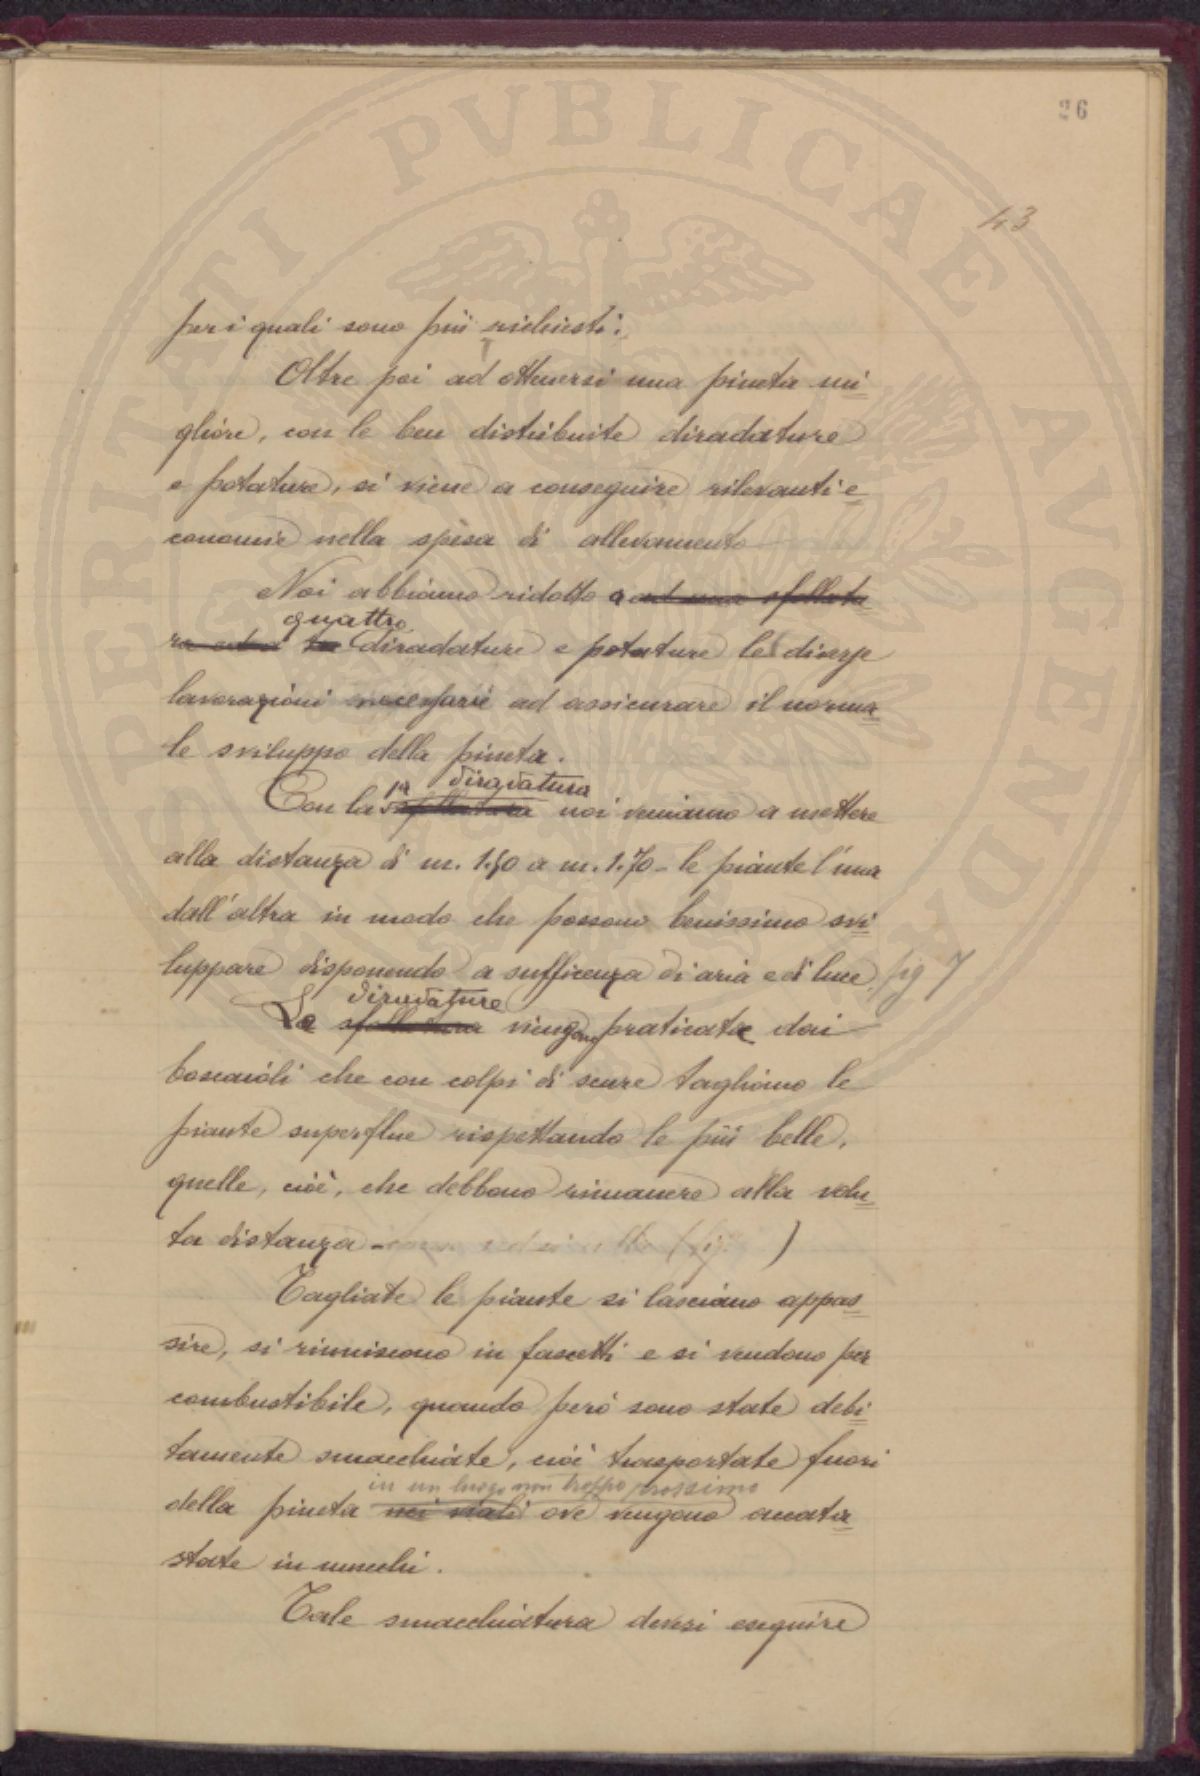 26
43
per i quali sono più richiesti.
Oltre poi ad ottenersi una pineta mi
gliore, con le ben distribuite diradature
e potature, si viene a conseguire rilevanti e
conomie nella spesa di allevamento
Noi abbiamo ridotto a ad una sfollatu
ra ed a tre quattro diradature e potature le diverse
lavorazioni necessarie ad assicurare il norma
le sviluppo della pineta.
Con la 1a sfollatura diradatura noi veniamo a mettere
alla distanza di m. 1.50 a m. 1.70 - le piante l'una
dall'altra in modo che possono benissimo svi
luppare disponendo a sufficenza di aria e di luce. fig 7
Le sfollatura diradature vengono praticate dai
boscaioli che con colpi di scure tagliano le
piante superflue rispettando le più belle,
quelle, cioè, che debbono rimanere alla volu
ta distanza - (fig. )
Tagliate le piante si lasciano appas
sire, si riuniscono in fascetti e si vendono per
combustibile, quando però sono state debi
tamente smacchiate, cioè trasportate fuori
in un luogo non troppo prossimo
della pineta nei viali ove vengono accata
state in mucchi.
Tale smacchiatura devesi eseguire
PERITATI PVBLICAE AVGENDAE